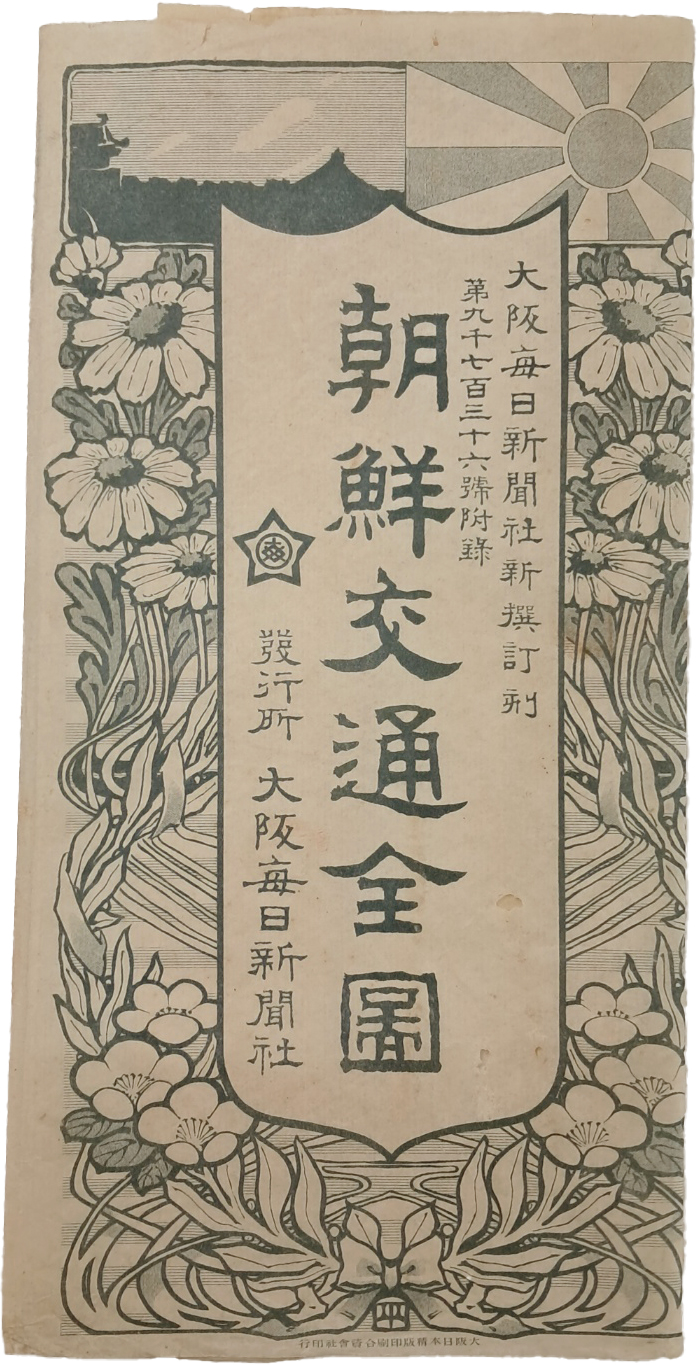 大阪毎日新聞社新撰訂刻
第九千七百三十六號附錄
朝鮮交通全圖
發行所 大阪毎日新聞社
大阪日本精版印刷合資會社印行